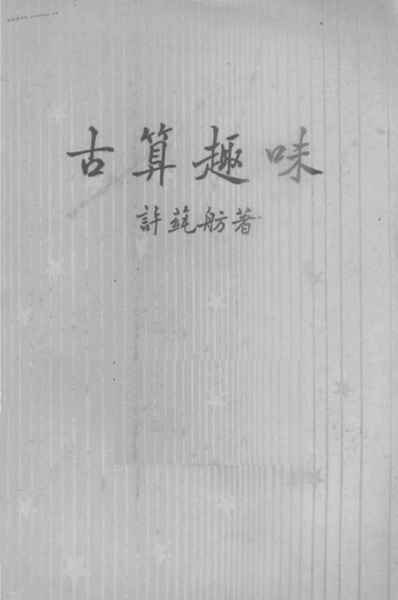 古算趣味
許蒓舫著